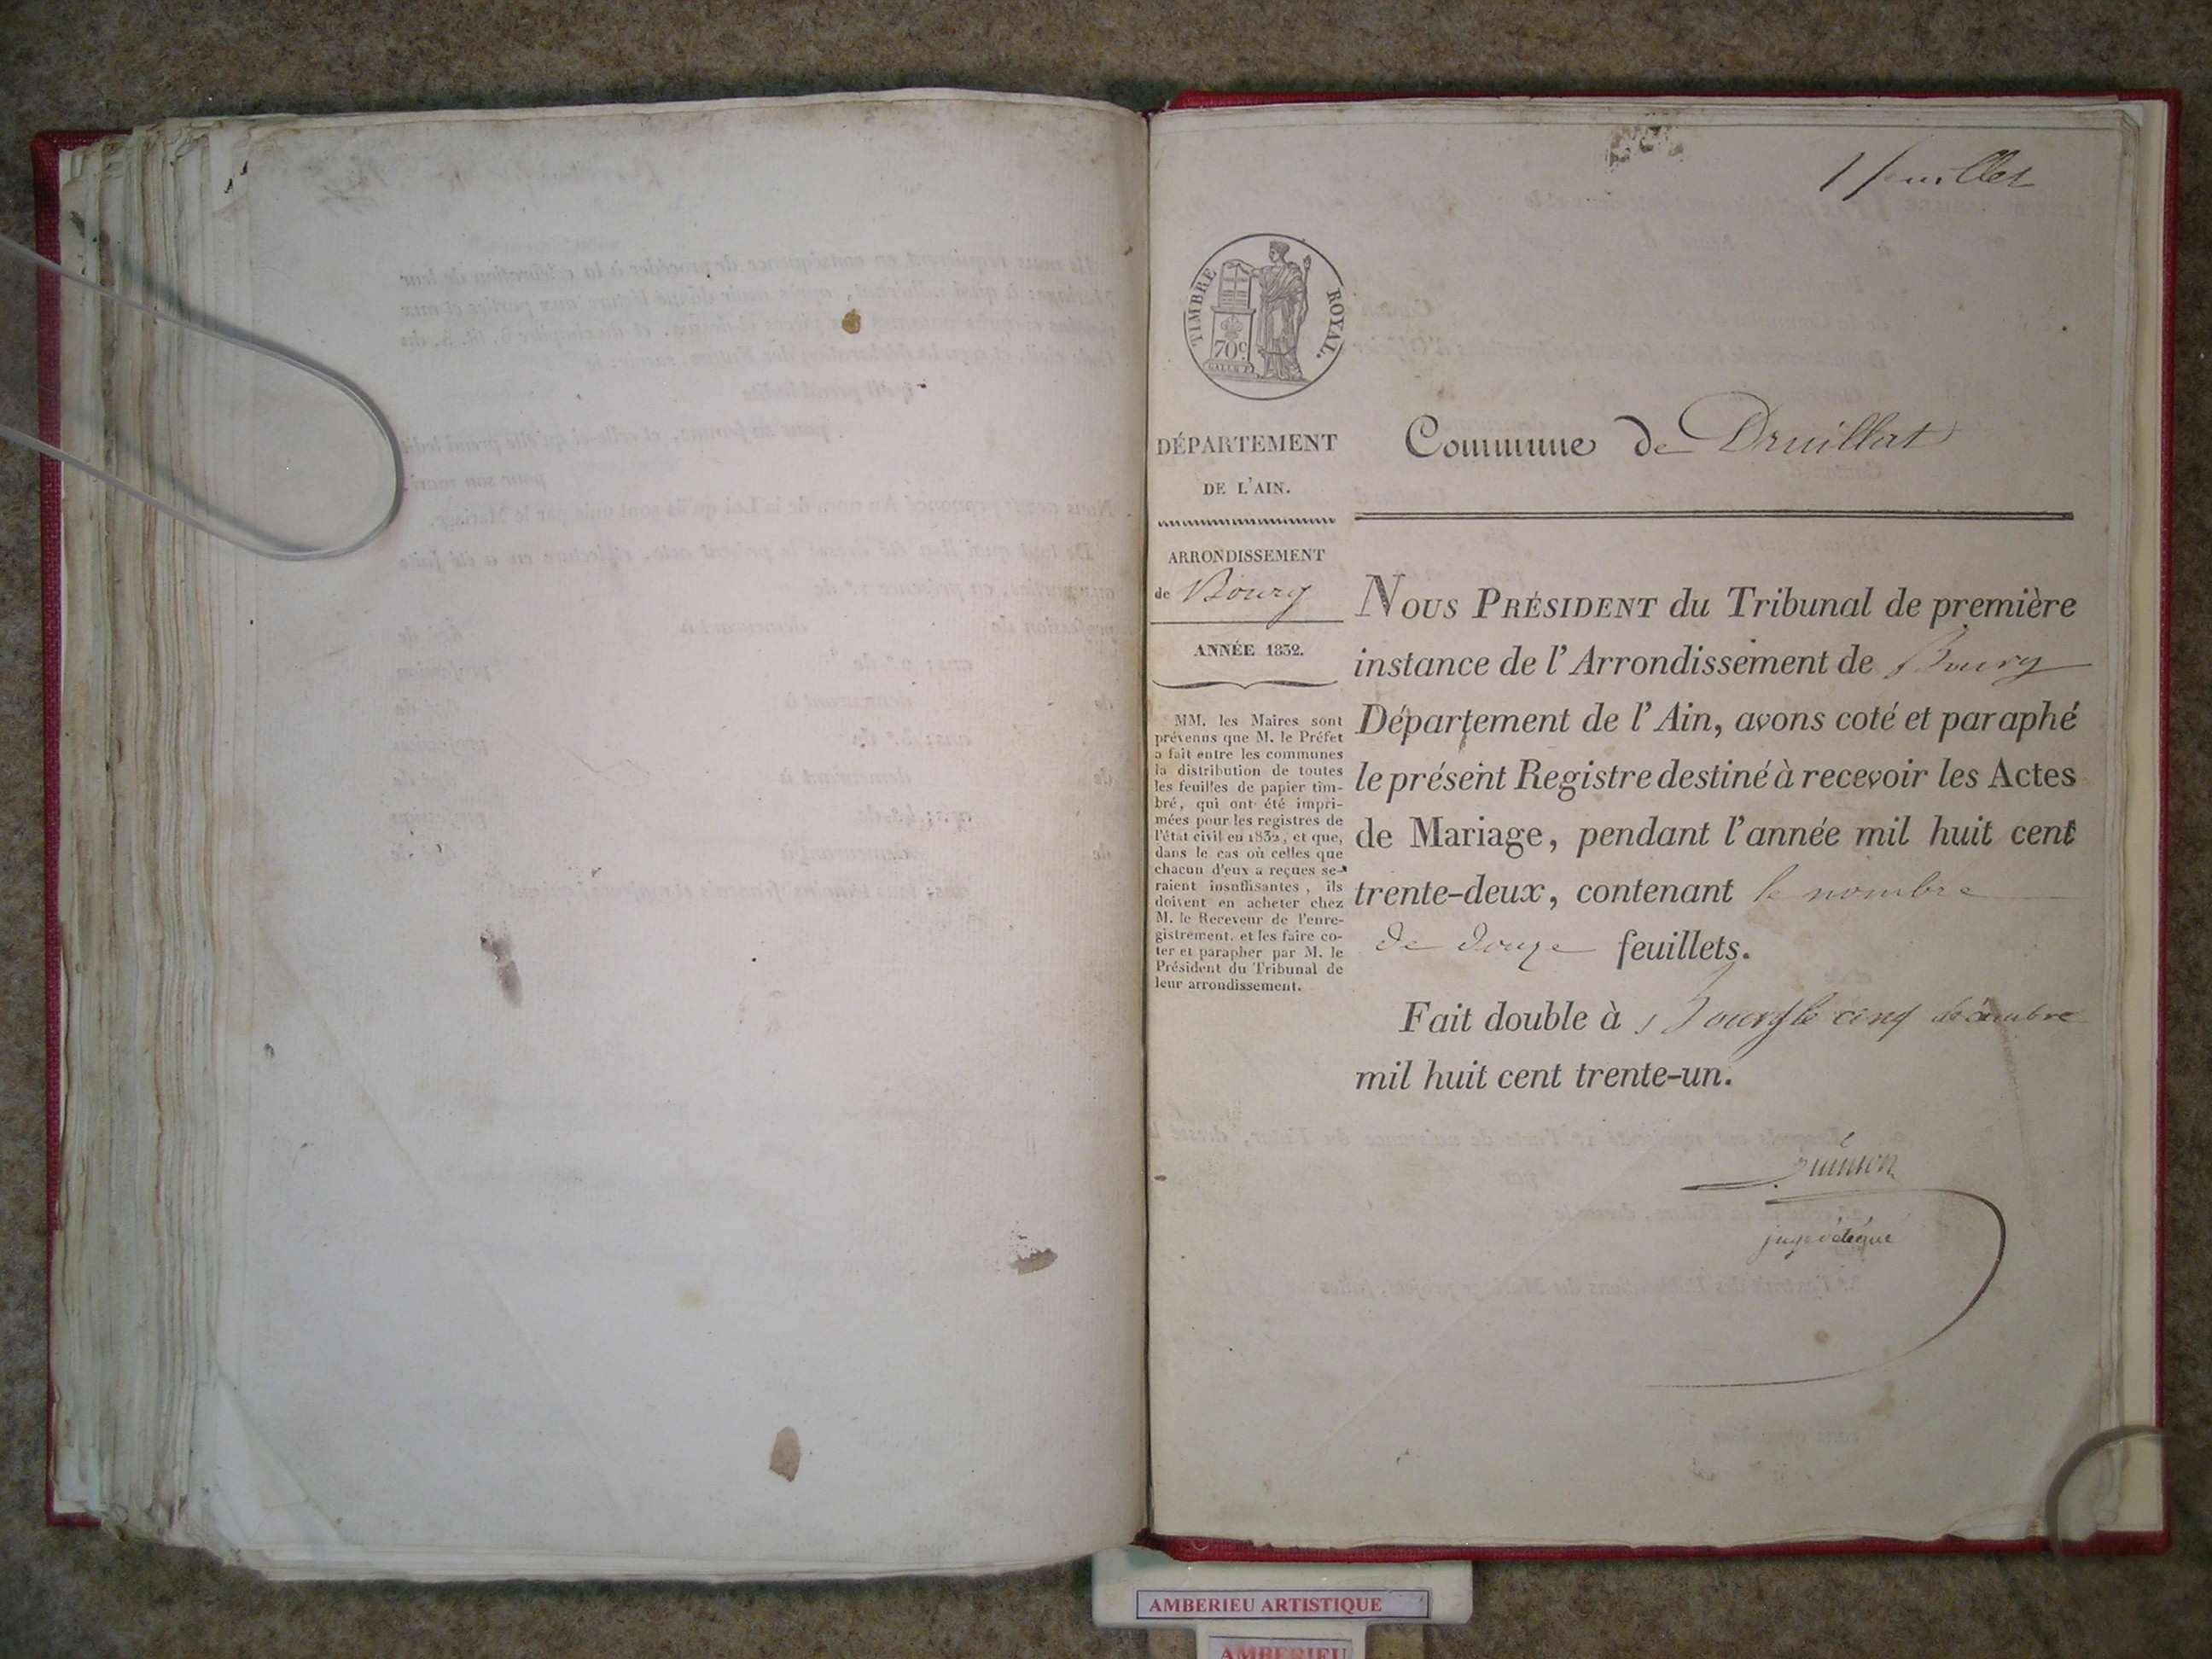 1 feuillet
TIMBRE ROYAL.
70c
DÉPARTEMENT
DE L'AIN.
ARRONDISSEMENT
de Bourg
ANNÉE 1832.
MM. les Maires sont
prévenus que M. le Préfet
a fait entre les communes
la distribution de toutes
les feuilles de papier tim-
bré, qui ont été impri-
mées pour les registres de
l'état civil en 1832, et que,
dans le cas où celles que
chacun d'eux a reçues se-
raient insuffisantes, ils
doivent en acheter chez
M. le Receveur de l'enre-
gistrement, et les faire co-
ter et parapher par M. le
Président du Tribunal de
leur arrondissement.
Commune de Druillat
NOUS PRÉSIDENT du Tribunal de première
instance de l'Arrondissement de Bourg
Département de l'Ain, avons coté et paraphé
le présent Registre destiné à recevoir les Actes
de Mariage, pendant l'année mil huit cent
trente-deux, contenant le nombre
de douze feuillets.
Fait double à Bourg le cinq décembre
mil huit cent trente-un.
juge délégué
AMBERIEU ARTISTIQUE
AMBERIEU